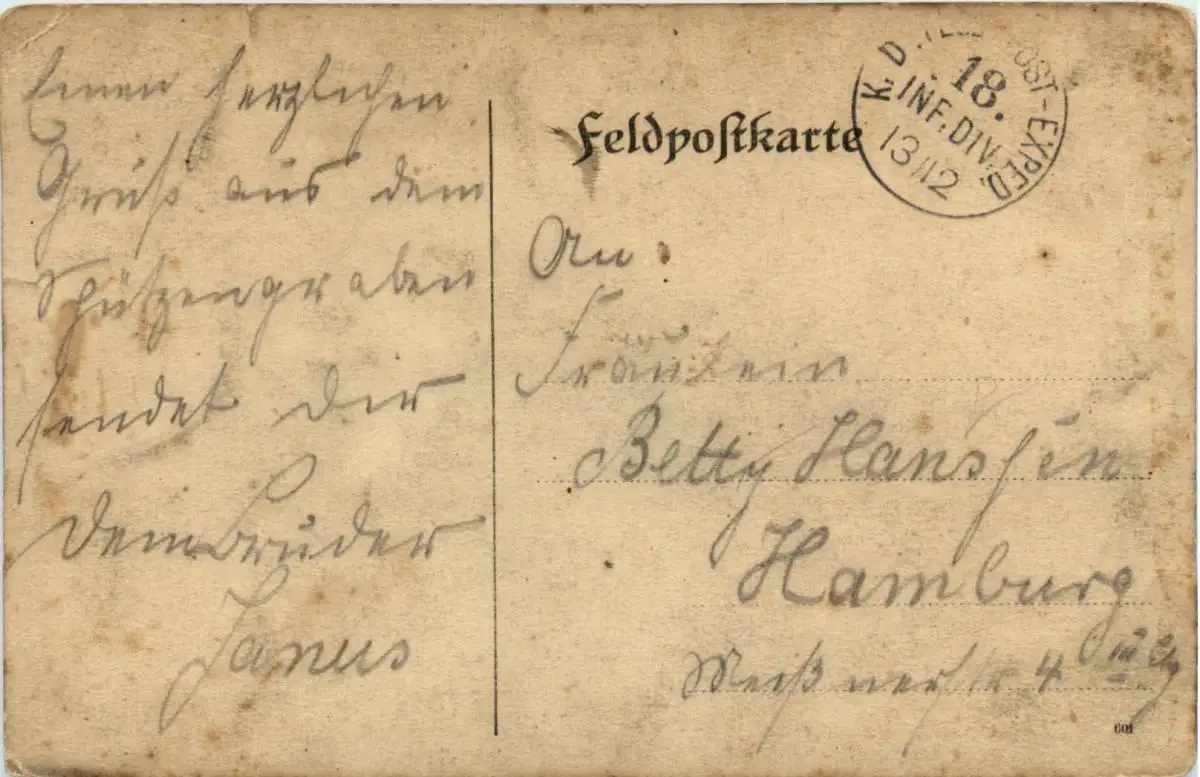 Einen herzlichen
Gruß aus dem
Schützengraben
sendet Dir
Dein Bruder
Janus
Feldpostkarte
K. D. FELDPOST-EXPED.
18.
INF. DIV.
13 112
An
Fräulein
Betty Hanssen
Hamburg
Meißnerstr 4 III
601